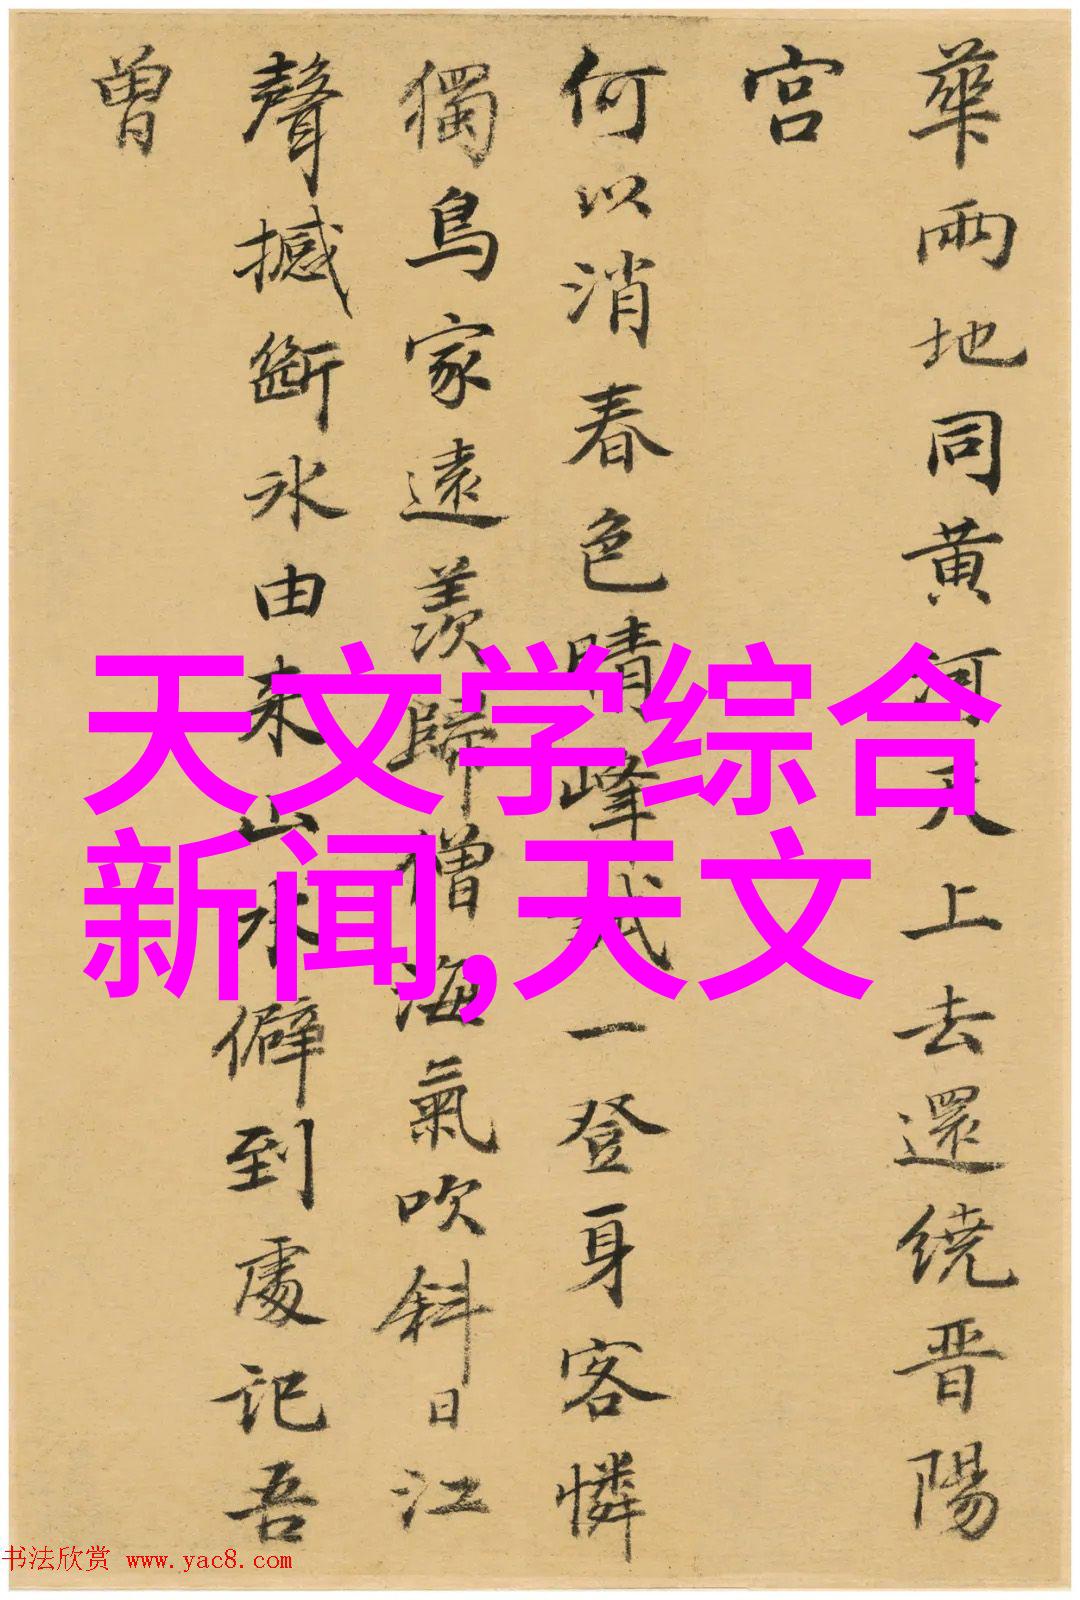 華兩地同黄河天上去還繞晋陽
宫
何以消春色晴峰試一登身客憐
獨鳥家遠羨歸僧海氣吹斜日江
聲撼斷冰由来山水僻到處記吾
曾
天文学综合
新闻,天文
书法欣赏 www.yac8.com